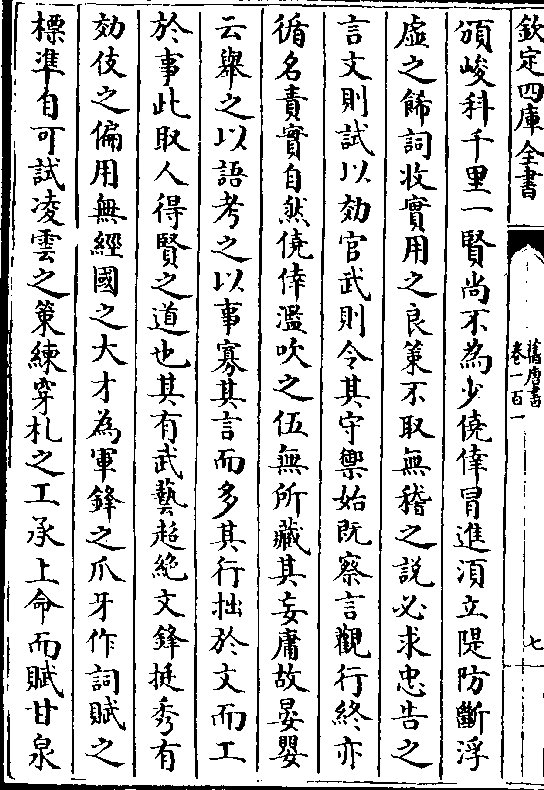 欽定四庫全書
舊唐書
卷一百一
七
頒峻科千里一賢尚不為少僥倖冒進湏立隄防斷浮
虛之餙詞收實用之良策不取無稽之說必求忠告之
言文則試以効官武則令其守禦始既察言觀行終亦
循名責實自然僥倖濫吹之伍無所藏其妄庸故晏嬰
云舉之以語考之以事寡其言而多其行拙於文而工
於事此取人得賢之道也其有武藝超絶文鋒挺秀有
効伎之偏用無經國之大才為軍鋒之爪牙作詞賦之
標準自可試凌雲之策練穿札之工承上命而賦甘泉